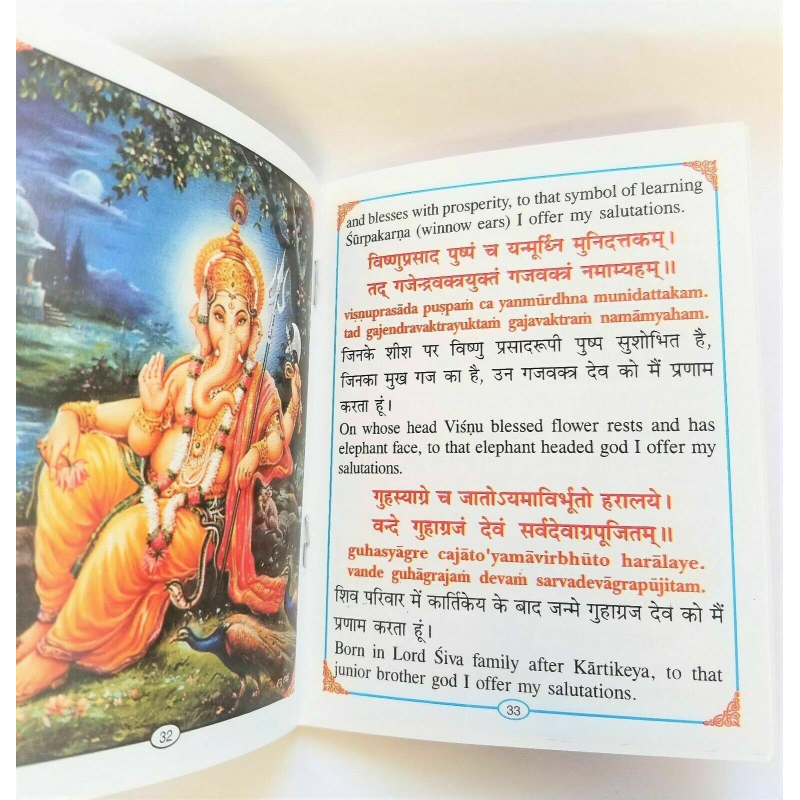 32
and blesses with prosperity, to that symbol of learning
Śūrpakarṇa (winnow ears) I offer my salutations.
विष्णुप्रसाद पुष्पं च यन्मूर्ध्नि मुनिदत्तकम्।
तद् गजेन्द्रवक्त्रयुक्तं गजवक्त्रं नमाम्यहम्॥
viṣṇuprasāda puṣpaṁ ca yanmūrdhna munidattakam.
tad gajendravaktrayuktaṁ gajavaktraṁ namāmyaham.
जिनके शीश पर विष्णु प्रसादरूपी पुष्प सुशोभित है,
जिनका मुख गज का है, उन गजवक्त्र देव को मैं प्रणाम
करता हूं।
On whose head Viśnu blessed flower rests and has
elephant face, to that elephant headed god I offer my
salutations.
गुहस्याग्रे च जातोऽयमाविर्भूतो हरालये।
वन्दे गुहाग्रजं देवं सर्वदेवाग्रपूजितम्॥
guhasyāgre cajāto'yamāvirbhūto harālaye.
vande guhāgrajaṁ devaṁ sarvadevāgrapūjitam.
शिव परिवार में कार्तिकेय के बाद जन्मे गुहाग्रज देव को मैं
प्रणाम करता हूं।
Born in Lord Śiva family after Kārtikeya, to that
junior brother god I offer my salutations.
33